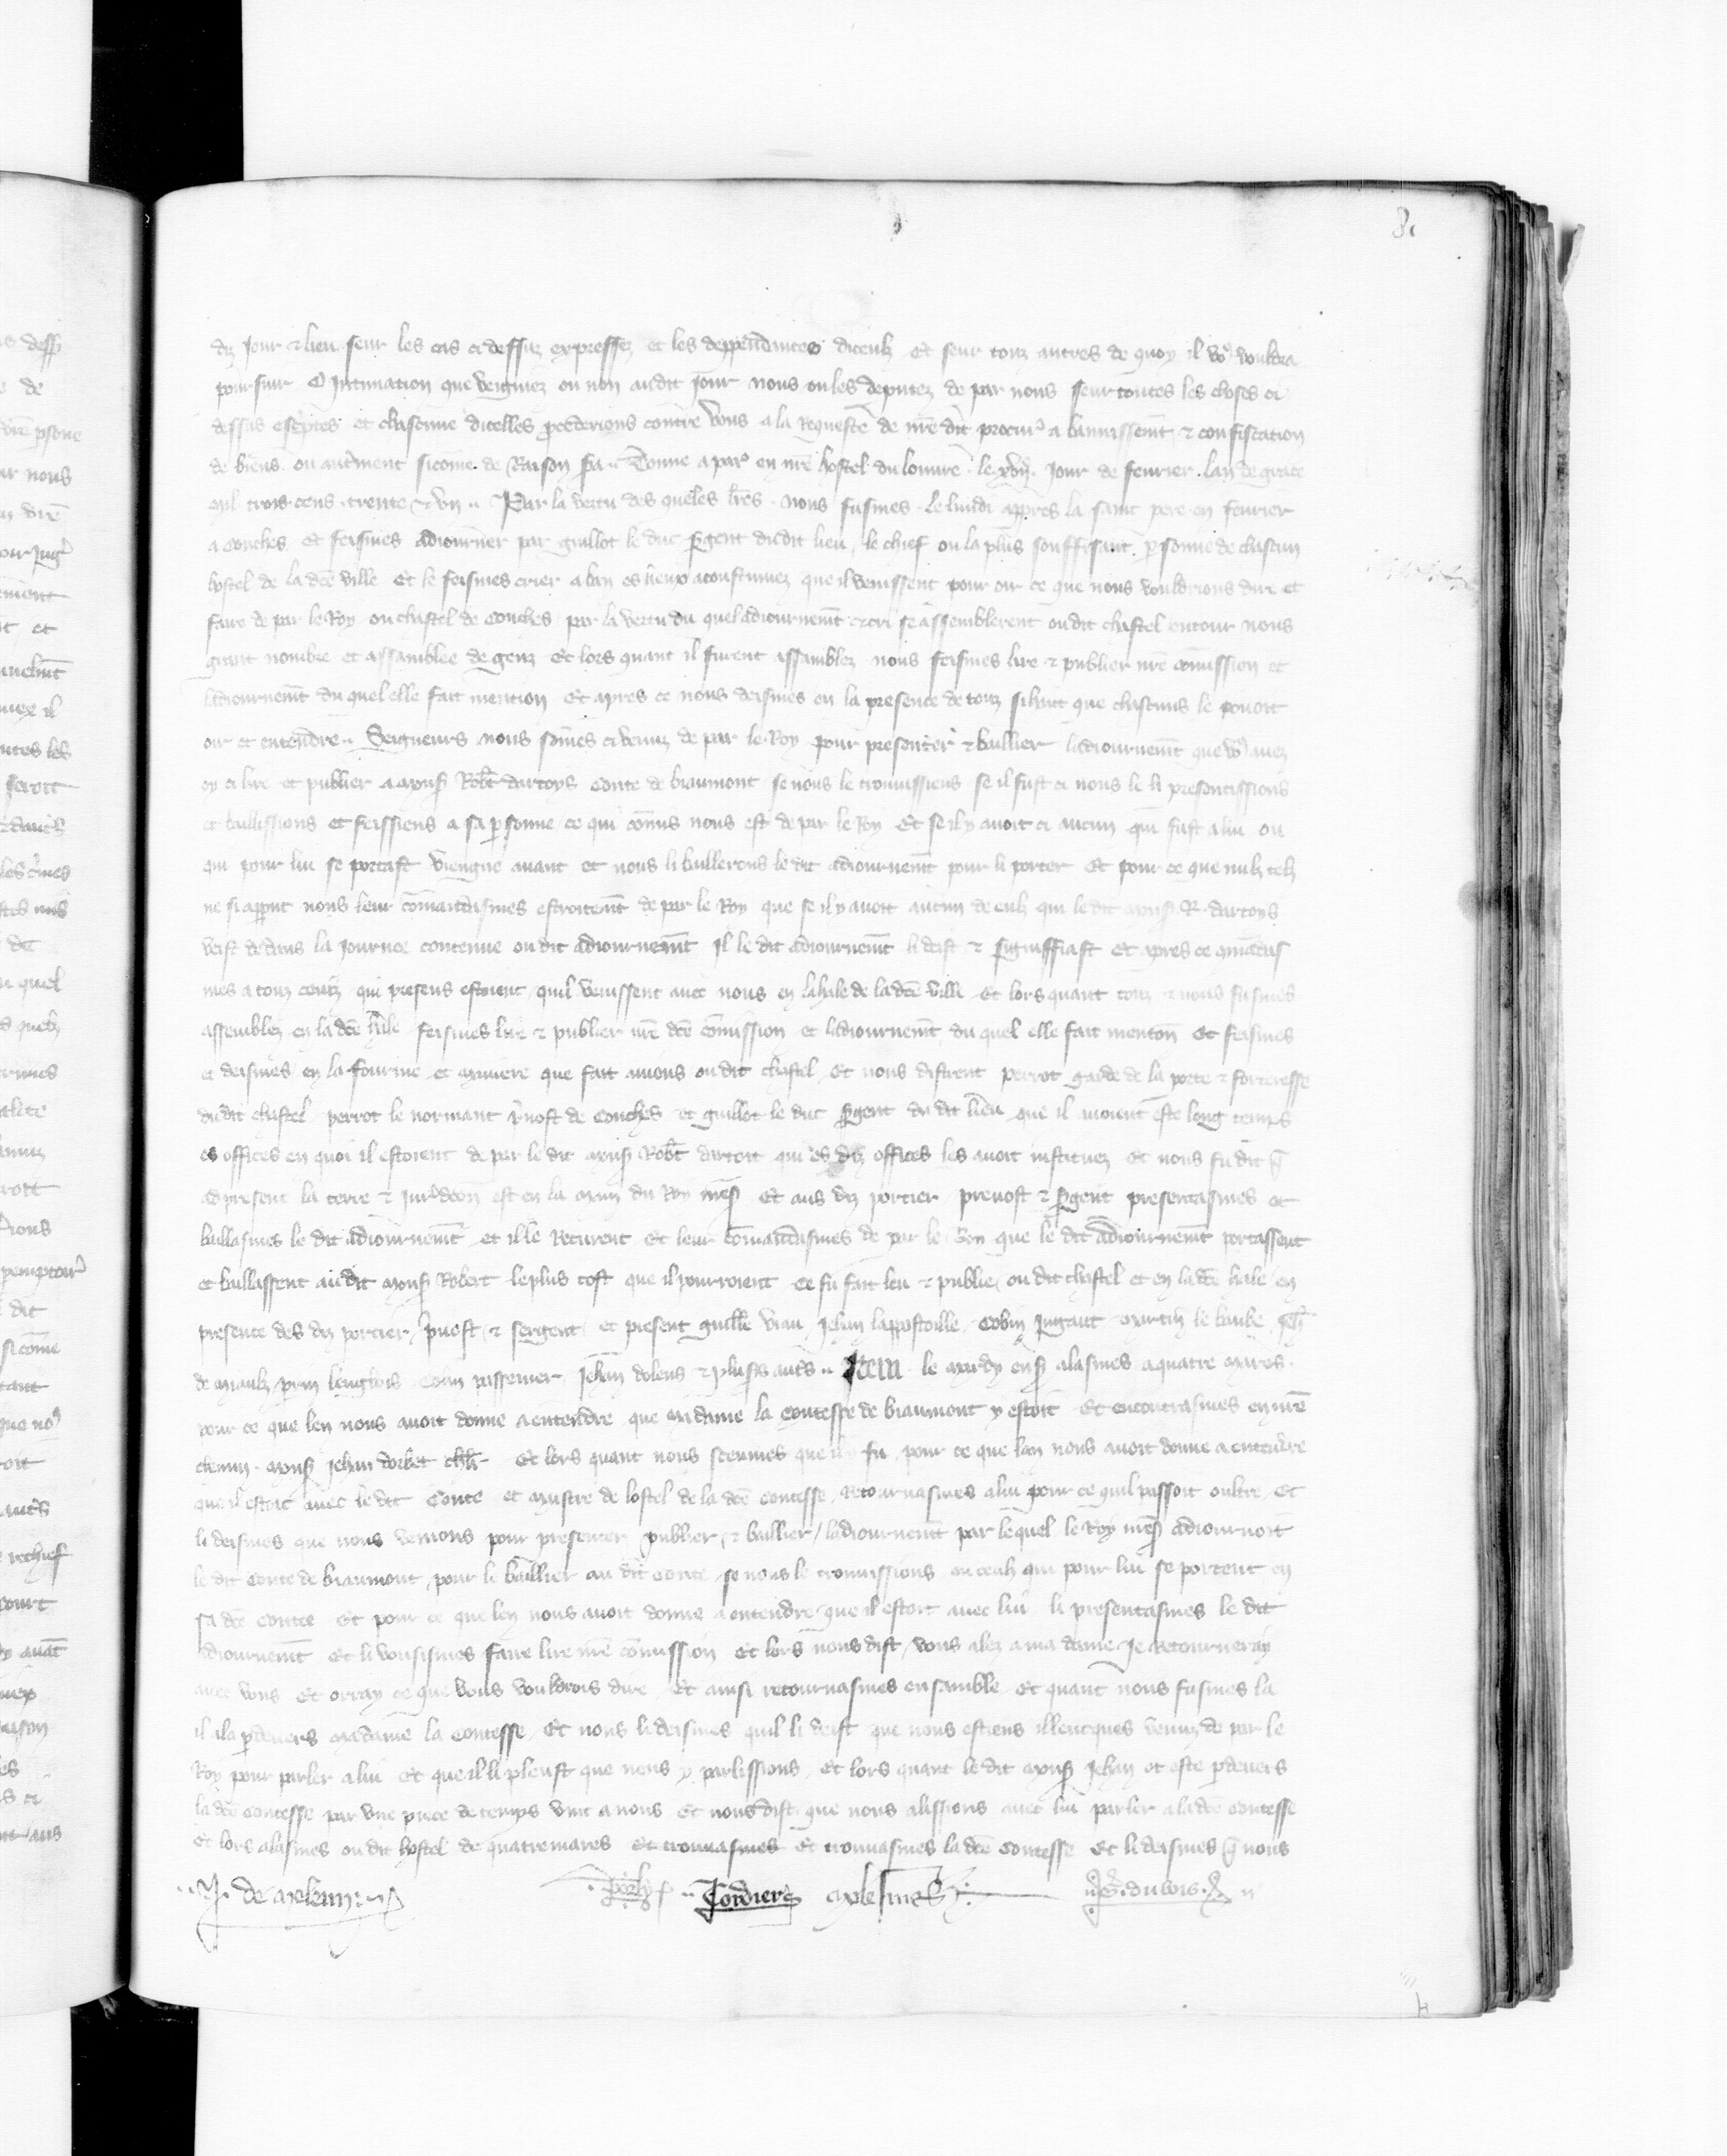 81
diz jour et lieu seur les cas ci dessuz expressez et les deppendances diceulz Et seur touz autres de quoy il vo9 vouldra
poursuir O Intimation que veigniez ou non audit Jour nous ou les deputez de par nous seur toutes les choses ci
dessus escriptes et chascune dicelles procederions contre vous a la Requeste de nre dit procur a bannissemt et confiscation
de biens ou autrment sicome de Raison sera Donne a par en nre hostel du louure le Jour de feurier lan de grace
mil trois cens trente et vn Par la vertu des queles lres nous fusmes le lundi appres la saint pere en feurier
a Conches et feismes adiourner par guillot le duc sergent dudit lieu le chief ou la plus souffisant personne de chascun
hostel de la dce ville Et le feismes crier a ban es lieux acoustumez que il venissent pour oir ce que nous vouldrions dire et
faire de par le Roy ou chastel de Conches par la vertu du quel adiournemt et cri se assemblerent oudit chastel entour nous
grant nombre et assamblee de genz Et lors quant il furent assamblez nous feismes lire et publier nre comission et
ladiournemt du quel elle fait mention Et apres ce nous deismes en la presence de touz si haut que chascuns le pouoit
oir et entendre Seigneurs nous somes ci venuz de par le Roy pour presenter et baillier ladiournemt que vo9 auez
oy ci lire et publier a mons Robt dartoys Conte de biaumont se nous le trouuissiens se il fust ci nous le li presentissions
et baillissions et feissiens a sa personne ce qui comis nous est de par le Roy Et se il y auoit ci aucun qui fust a lui ou
qui pour lui se portast viengne auant et nous li baillerons le dit adiournemt pour li porter Et pour ce que nulz telz
ne si apput nous leur comandasmes estroitemt de par le Roy que se il y auoit aucun de eulz qui le dit mons R dartoys
veist dedans la Journee contenue oudit adiournemt Il le dit adiournemt li deist et signiffiast Et apres ce
mes a touz ceulz qui presens estoient quil venissent auec nous en la hale de la dce ville Et lors quant touz et nous fusmes
assemblez en la dce hale feismes lire et publier nre dce comission et ladiournemt du quel elle fait menton Et feismes
et deismes en la fourme et maniere que fait auons oudit chastel Et nous distrent perrot garde de la porte et forteresse
dudit chastel perrot le normant puost de Conches et guillot le duc sergent du dit lieu que il auoient este long temps
es offices en quoi il estoient de par le dit mons Robt dartois qui es diz offices les auoit instituez Et nous fu dit q
a present la terre et est en la main du Roy nres Et aus diz portier preuost et sergent presentasmes et
baillasmes le dit adiournemt et il le Recurent Et leur comandasmes de par le Roy que le dit adiournemt portassent
et baillassent audit mons Robert le plus tost que il pourroient Ce fu fait leu et publie ou dit chastel et en la dce hale en
presence des diz portier puost et sergent et present guille viau Jehan lappostoille Robin Jugaut martin le baube
de miaulz perrin lenglois Jehan dolens et plusrs autrs Item le mardy ensi alasmes a quatre mares
pour ce que len nous auoit donne a entendre que madame la Contesse de biaumont y estoit Et encontrasmes en nre
chemin mons Jehan dorbet chlr Et lors quant nous sceumes que il y fu pour ce que lan nous auoit donne a entendre
que il estoit auec le dit Conte et maistre de lostel de la dce contesse retournasmes a lui pour ce quil passoit oultre Et
li deismes que nous venions pour presenter publier et baillier ladiournemt par lequel le Roy nres adiournoit
le dit Conte de biaumont pour le baillier au dit Conte se nous le trouuissions ou ceulz qui pour lui se portent en
sa dce Contee Et pour ce que len nous auoit donne a entendre que il estoit auec lui li presentasmes le dit
adiournemt Et li vousismes faire lire nre comission Et lors nous dist vous alez a ma dame Je retourneray
auec vous Et orray ce que vous vouldrois dire Et ainsi retournasmes ensamble Et quant nous fusmes la
il ala pdeuers madame la Contesse Et nous li deismes quil li deist que nous estiens illeucques venuz de par le
Roy pour parler a lui Et que il li pleust que nous y parlissions Et lors quant le dit mons Jehan ot este pdeuers
la dce Contesse par vne piece de temps vint a nous Et nous dist que nous alissions auec lui parler a la dce contesse
Et lors alasmes ou dit hostel de quatremares et trouuasmes Et trouuasmes la dce Contesse Et li deismes q nous
J. de meleun Jordiers G. du bois